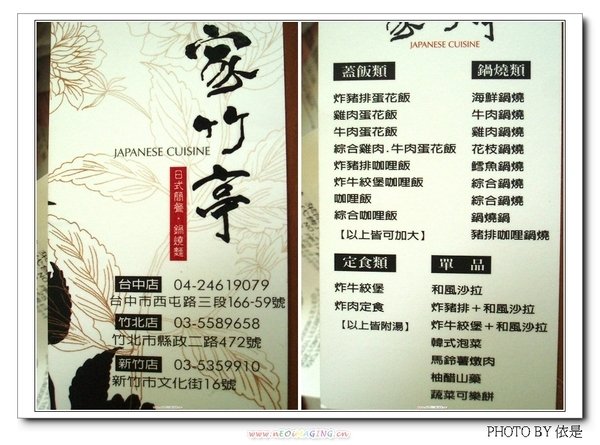 家竹亭
JAPANESE CUISINE
日式簡餐・鍋燒麵
台中店 04-24619079
台中市西屯路三段166-59號
竹北店 03-5589658
竹北市縣政二路472號
新竹店 03-5359910
新竹市文化街16號
JAPANESE CUISINE
蓋飯類
炸豬排蛋花飯
雞肉蛋花飯
牛肉蛋花飯
綜合雞肉.牛肉蛋花飯
炸豬排咖哩飯
炸牛絞堡咖哩飯
咖哩飯
綜合咖哩飯
【以上皆可加大】
鍋燒類
海鮮鍋燒
牛肉鍋燒
雞肉鍋燒
花枝鍋燒
鱈魚鍋燒
綜合鍋燒
綜合鍋燒
鍋燒鍋
豬排咖哩鍋燒
定食類
炸牛絞堡
炸肉定食
【以上皆附湯】
單品
和風沙拉
炸豬排+和風沙拉
炸牛絞堡+和風沙拉
韓式泡菜
馬鈴薯燉肉
柚醋山藥
蔬菜可樂餅
www.nEOiMAGING.cn
PHOTO BY 依是